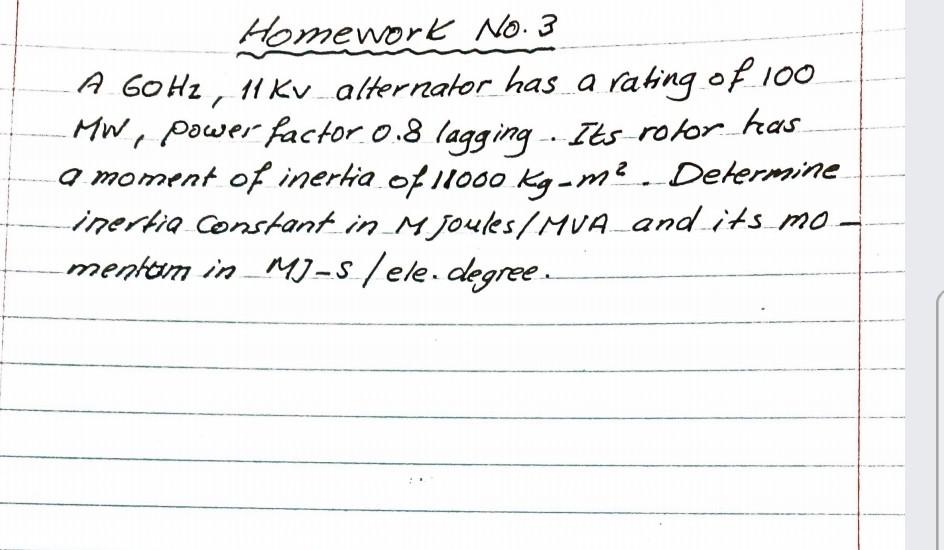 Homework No. 3
A 60Hz, 11 KV alternator has a rating of 100
MW, power factor 0.8 lagging. Its rotor has
a moment of inertia of 11000 Kg-m². Determine
inertia Constant in M joules/MVA and its mo-
mentum in MJ-s/ele. degree.